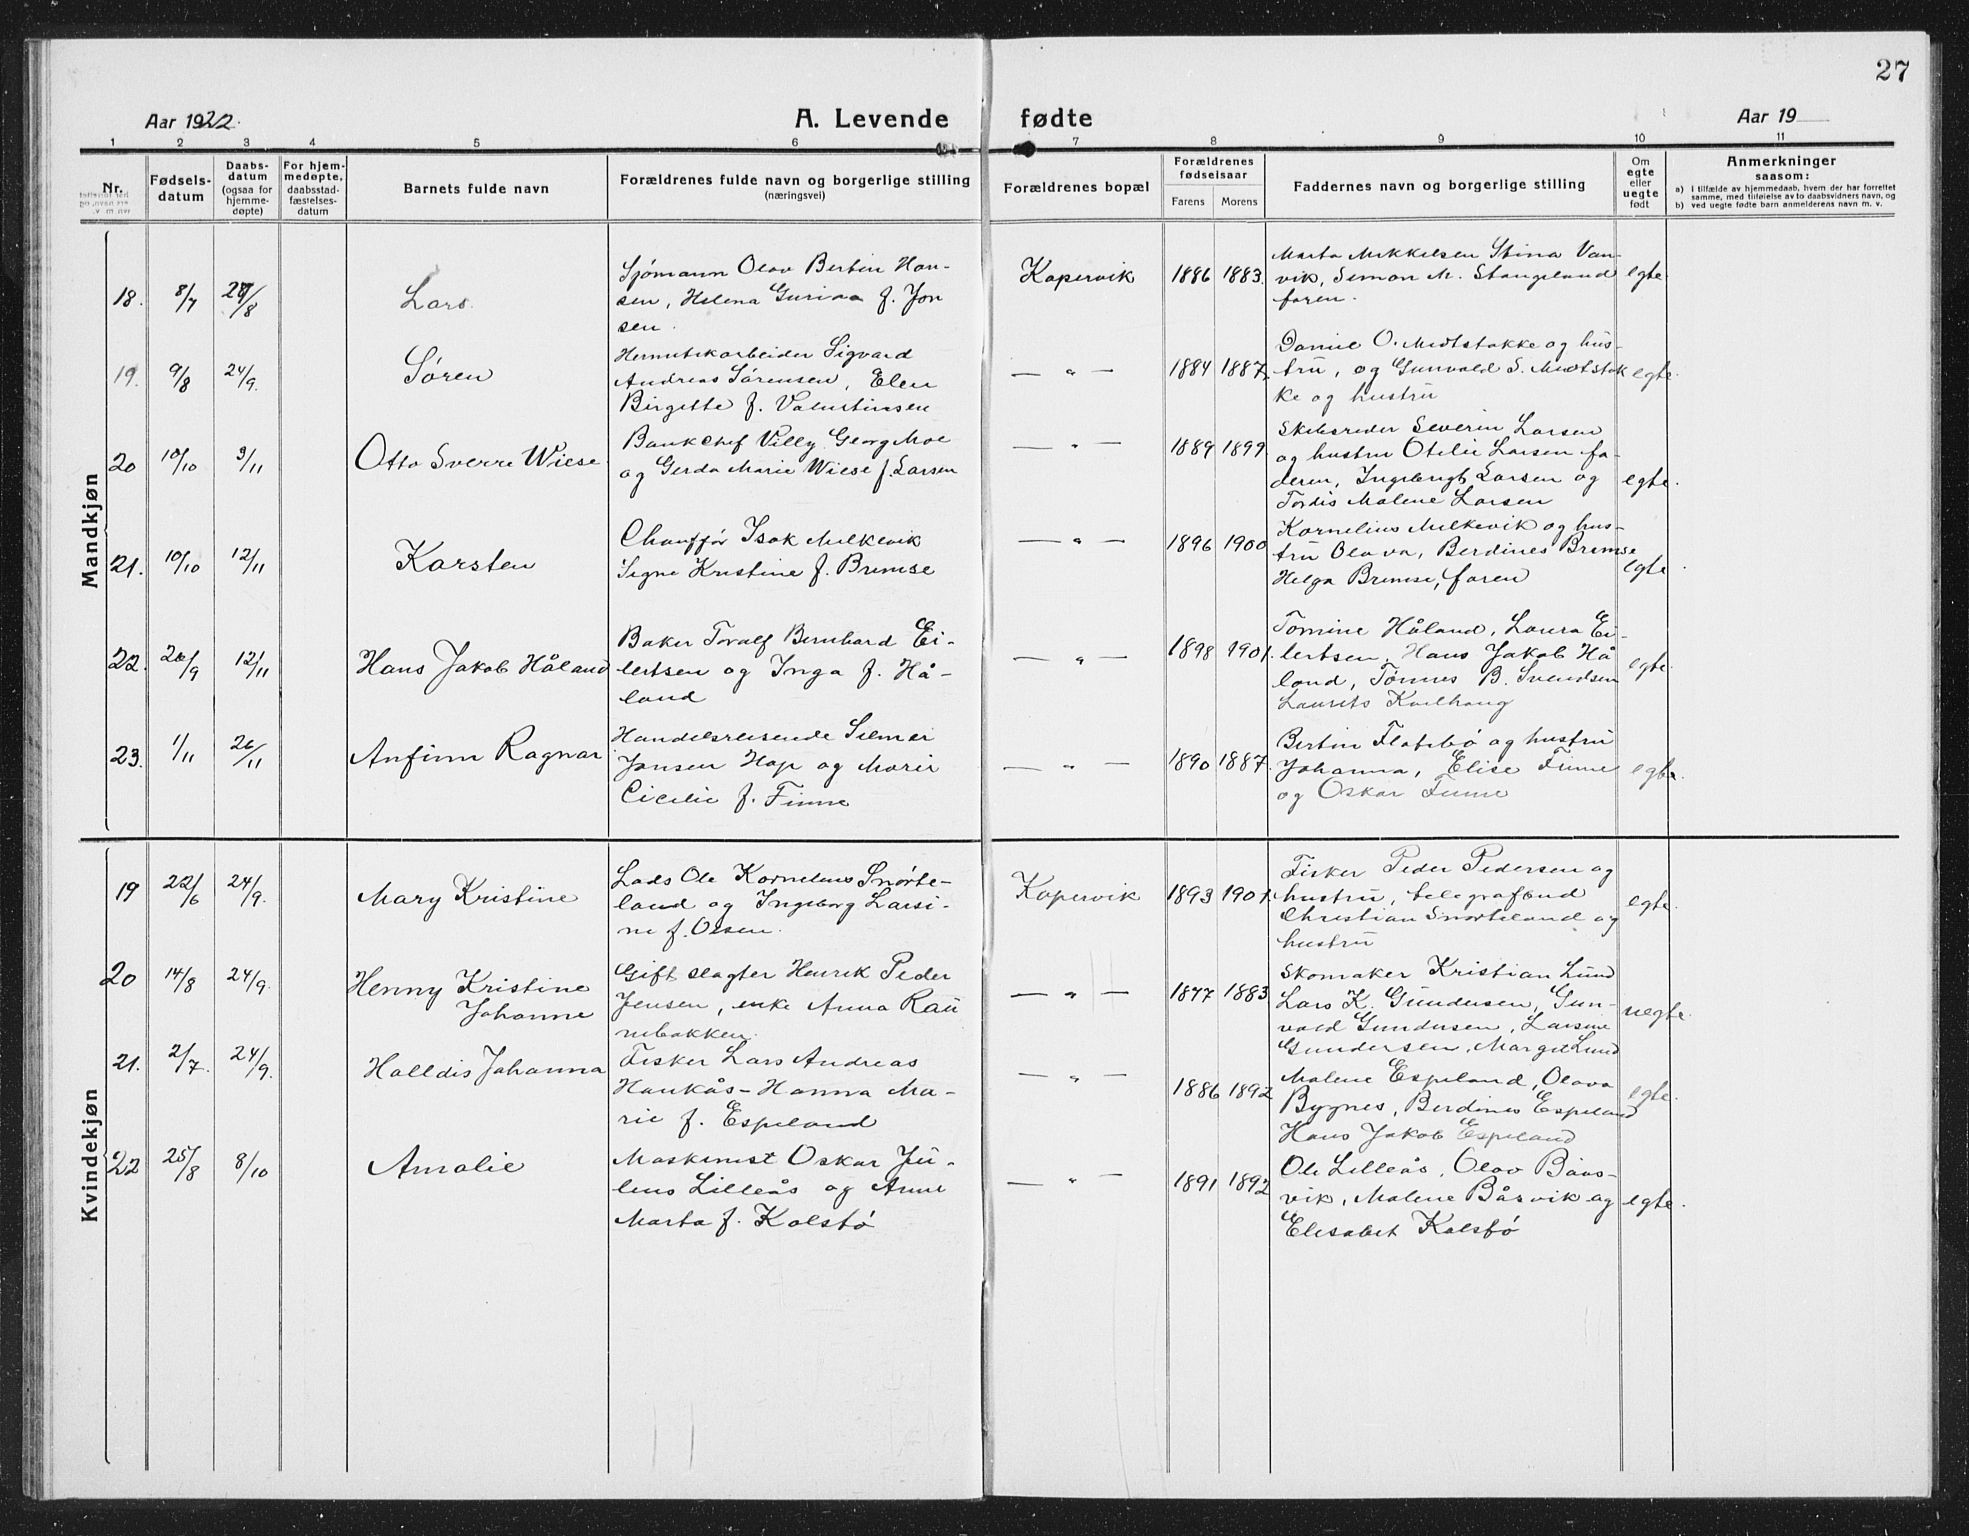 27
Aar 1922.
A. Levende fødte
Aar 19
1 2 3 4 5 6 7 8 9 10 11
Nr.
Fødsels-
datum
Daabs-
datum
(ogsaa for
hjemme-
døpte)
For hjem-
medøpte,
daabsstad-
fæstelses-
datum
Barnets fulde navn
Forældrenes fulde navn og borgerlige stilling
(næringsvei)
Forældrenes bopæl
Forældrenes
fødselsaar
Farens Morens
Faddernes navn og borgerlige stilling
Om
egte
eller
uegte
født
Anmerkninger
saasom:
a) I tilfælde av hjemmedaab, hvem der har forrettet
samme, med tilføielse av to daabsvidners navn, og
b) ved uegte fødte barn anmelderens navn m. v.
Mandkjøn
18. 8/7 27/8 Lars.
Sjømann Olav Bertin Han-
sen, Helena Gurina f. Jon
sen.
Kopervik 1886 1883.
Marta Mikkelsen Stina Van-
vik, Simon M. Stangeland
faren.
egte.
19. 9/8 24/9. Søren
Hermetikarbeider Sigvard
Andreas Sørensen, Elen
Birgitte f. Valentinsen
— " — 1884 1887.
Daniel O. Midtstokke og hus-
tru, og Gunvald S. Midtstok
ke og hustru
egte.
20 10/10 3/11 Otto Sverre Wiese
Bankchef Villy Georg Moe
og Gerda Marie Wiese f. Larsen
— " — 1889 1899.
Skibsreder Severin Larsen
og hustru Otelie Larsen fa-
deren, Ingebrigt Larsen og
Tordis Malene Larsen
egte.
21. 10/10 12/11 Karsten
Chauffør Isak Milkevik
Signe Kristine f. Brimse
— " — 1896 1900
Kornelius Milkevik og hus-
tru Olava, Berdines Brimse
Helga Brimse, faren
egte.
22. 26/9 12/11 Hans Jakob Håland
Baker Toralf Bernhard Ei-
lertsen og Inga f. Hå-
land
— " — 1898 1901.
Tomine Håland, Laura Ei-
lertsen, Hans Jakob Hå
land, Tønnes B. Svendsen
Laurits Kvilhaug
egte.
23. 1/11 26/11 Anfinn Ragnar
Handelsreisende Selmer
Jansen Hop og Marie
Cicelie f. Finne
— " — 1890 1887.
Bertin Flatebø og hustru
Johanna, Elise Finne
og Oskar Finne
egte.
Kvindekjøn
19 22/6 24/9. Mary Kristine
Lods Ole Kornelius Snørte-
land og Ingeborg Larsi-
ne f. Olsen.
Kopervik 1893 1901.
Fisker Peder Pedersen og
hustru, telegrafbud
Christian Snørteland og
hustru
egte.
20 14/8 24/9. Henny Kristine
Johanne
Gift slagter Henrik Peder
Jensen, enke Anna Rau
nebakken.
— " — 1877 1883
Skomaker Kristian Lund
Lars K. Gundersen, Gun-
vald Gundersen, Larsine
Gundersen, Margit Lund
uegte.
21. 2/7. 24/9. Halldis Johanna
Fisker Lars Andreas
Haukås - Hanna Ma-
rie f. Espeland
— " — 1886 1892
Malene Espeland, Olava
Bygnes, Berdines Espeland
Hans Jakob Espeland
egte.
22 25/8 8/10 Amalie
Maskinist Oskar Ju-
lius Lilleås og Anne
Marta f. Kolstø
— " — 1891 1892
Ole Lilleås, Olav Bårs-
vik, Malene Bårvik og
Elisabet Kolstø
egte.